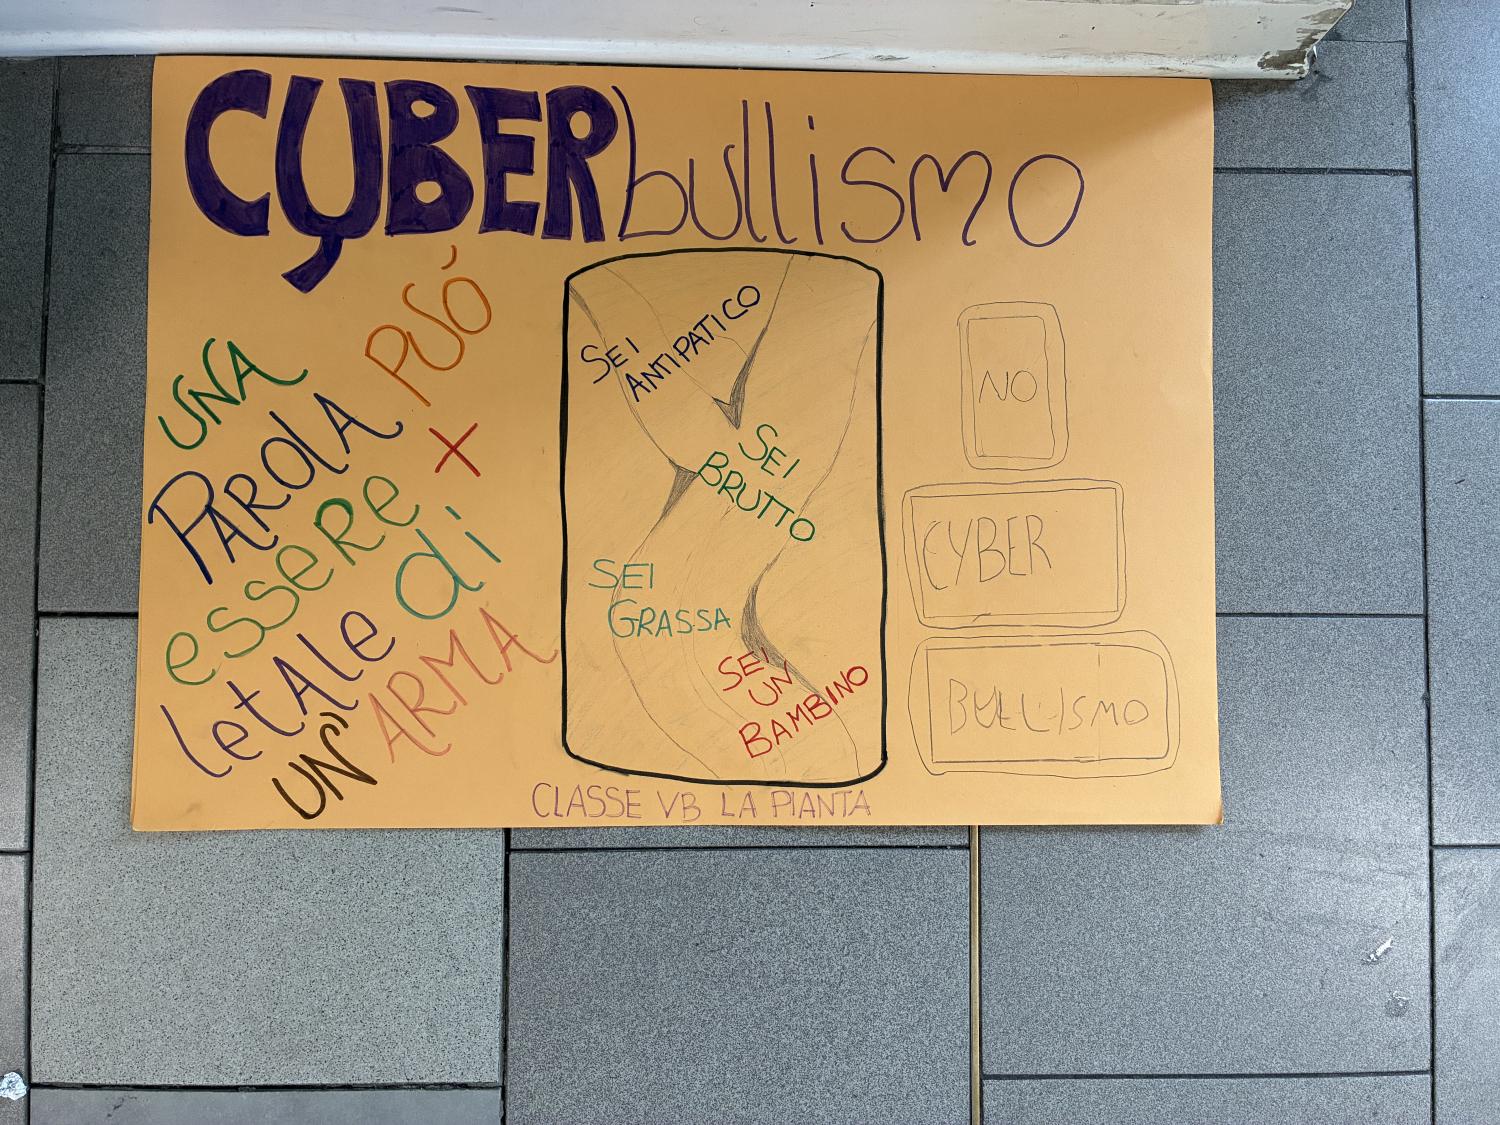 CYBERbullismo
UNA
PAROLA PUÓ
essere +
letAle di
UN' ARMA
SEI
ANTIPATICO
SEI
BRUTTO
SEI
GRASSA
SEI
UN
BAMBINO
NO
CYBER
BULLISMO
CLASSE VB LA PIANTA